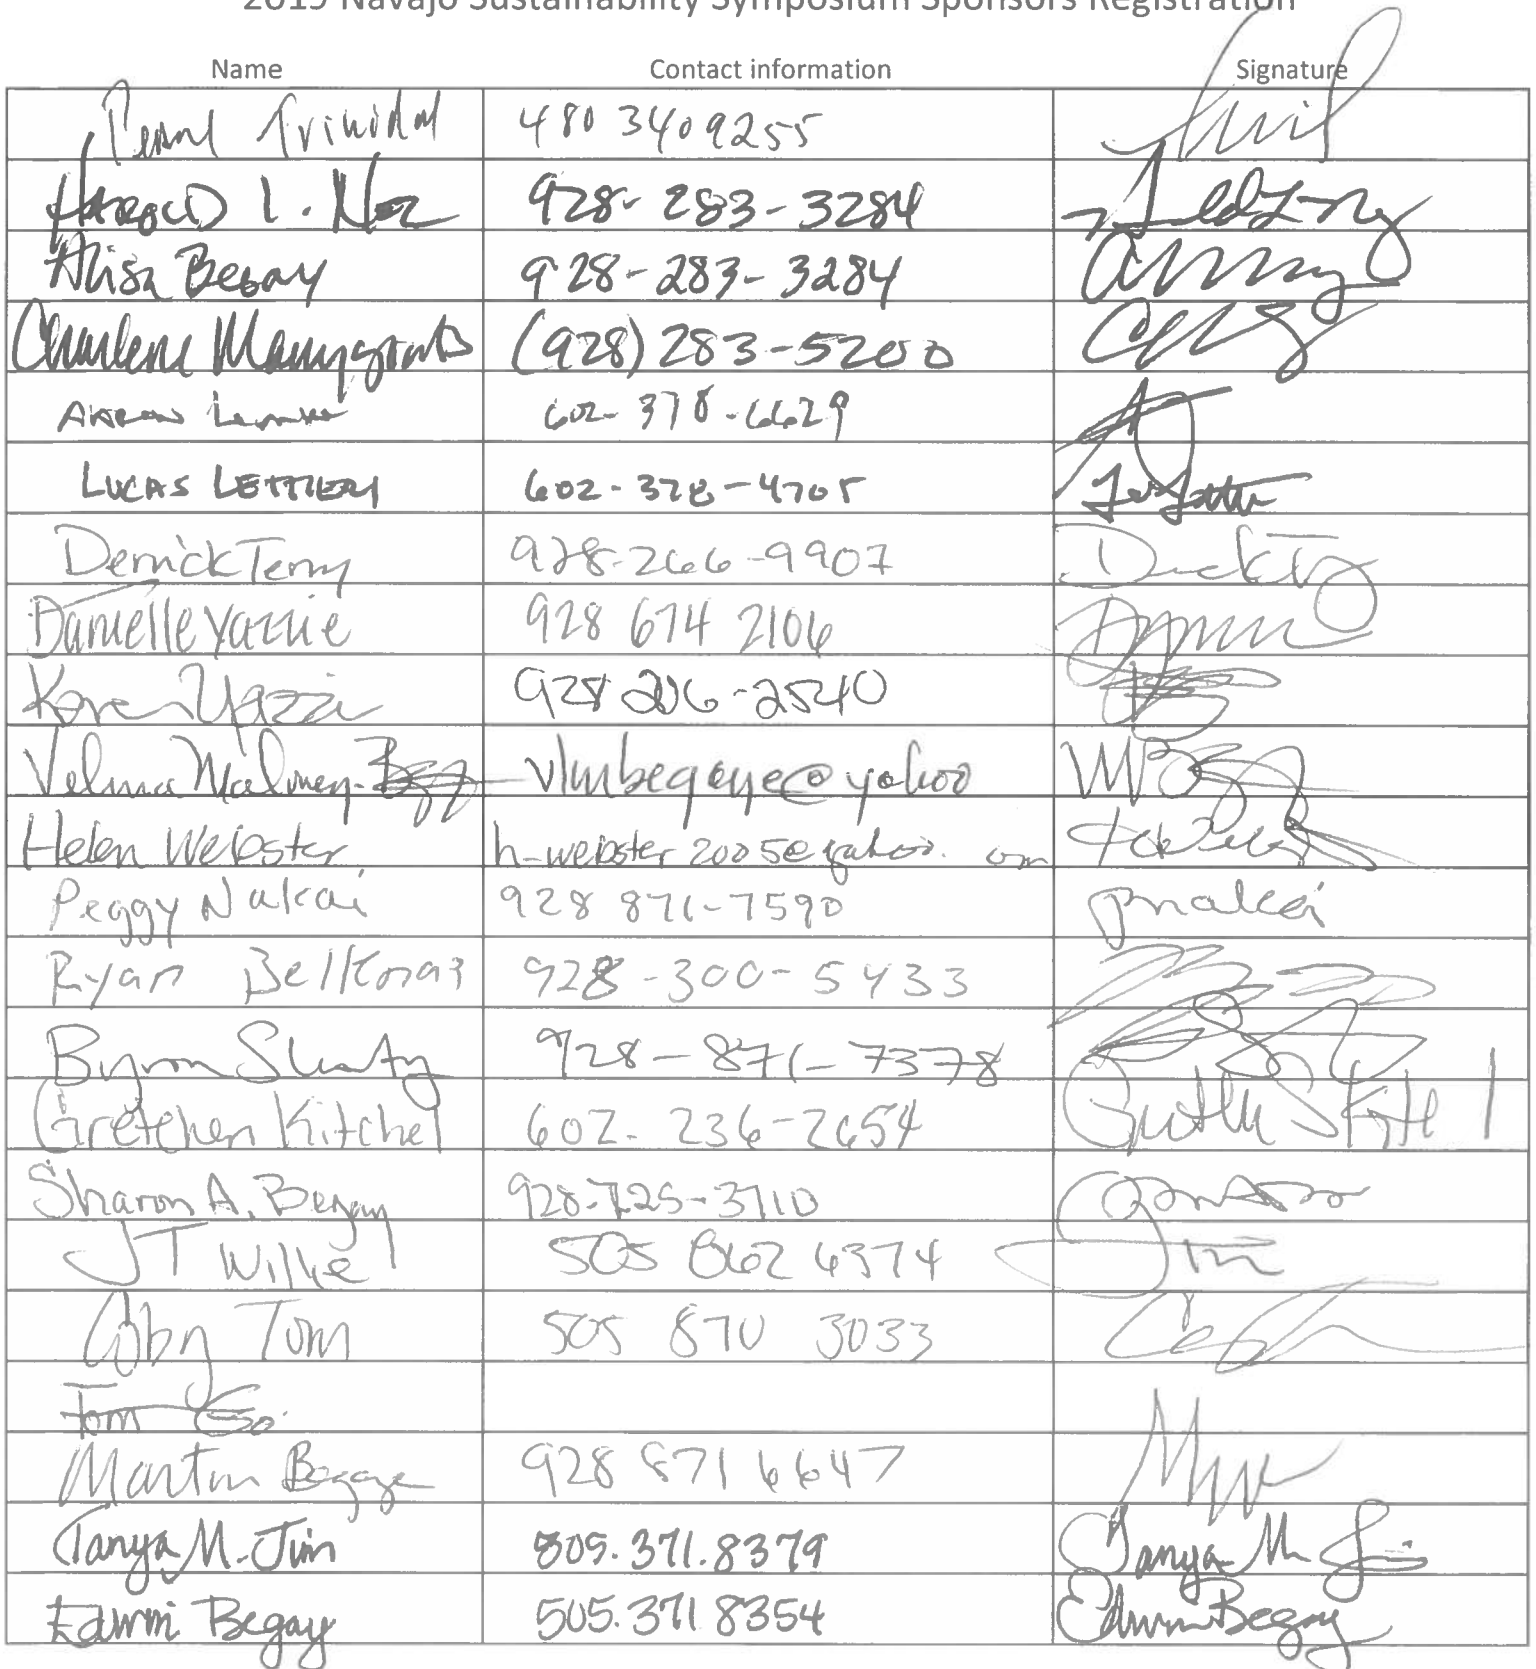 2019 Navajo Sustainability Symposium Sponsors Registration
Name Contact information Signature
Trinidad 480 3409255
Harold L. Noz 928-283-3284
Alisa Begay 928-283-3284
Charlene Manygoats (928) 283-5200
602-378-6629
LUCAS LETTIERI 602-378-4705
Derrick Terry 928-266-9907
Danielle Yazzie 928 674 2106
Karen Yazzie 928 206-2540
Velma Maloney-Begay vlmbegaye@yahoo
Helen Webster h-webster2005@yahoo.com
Peggy Nakai 928 871-7590 pnakai
Ryan Belknap 928-300-5433
Byron 928-871-7378
Gretchen Kitchel 602-236-2654
Sharon A. Begay 928-725-3710
JT Willie 505 862 4374
Coby Tom 505 870 3033
Tom Go
Martin Begaye 928 871 6647
Tanya M. Jim 505.371.8379 Tanya M. Jim
Edwin Begay 505.371 8354 Edwin Begay